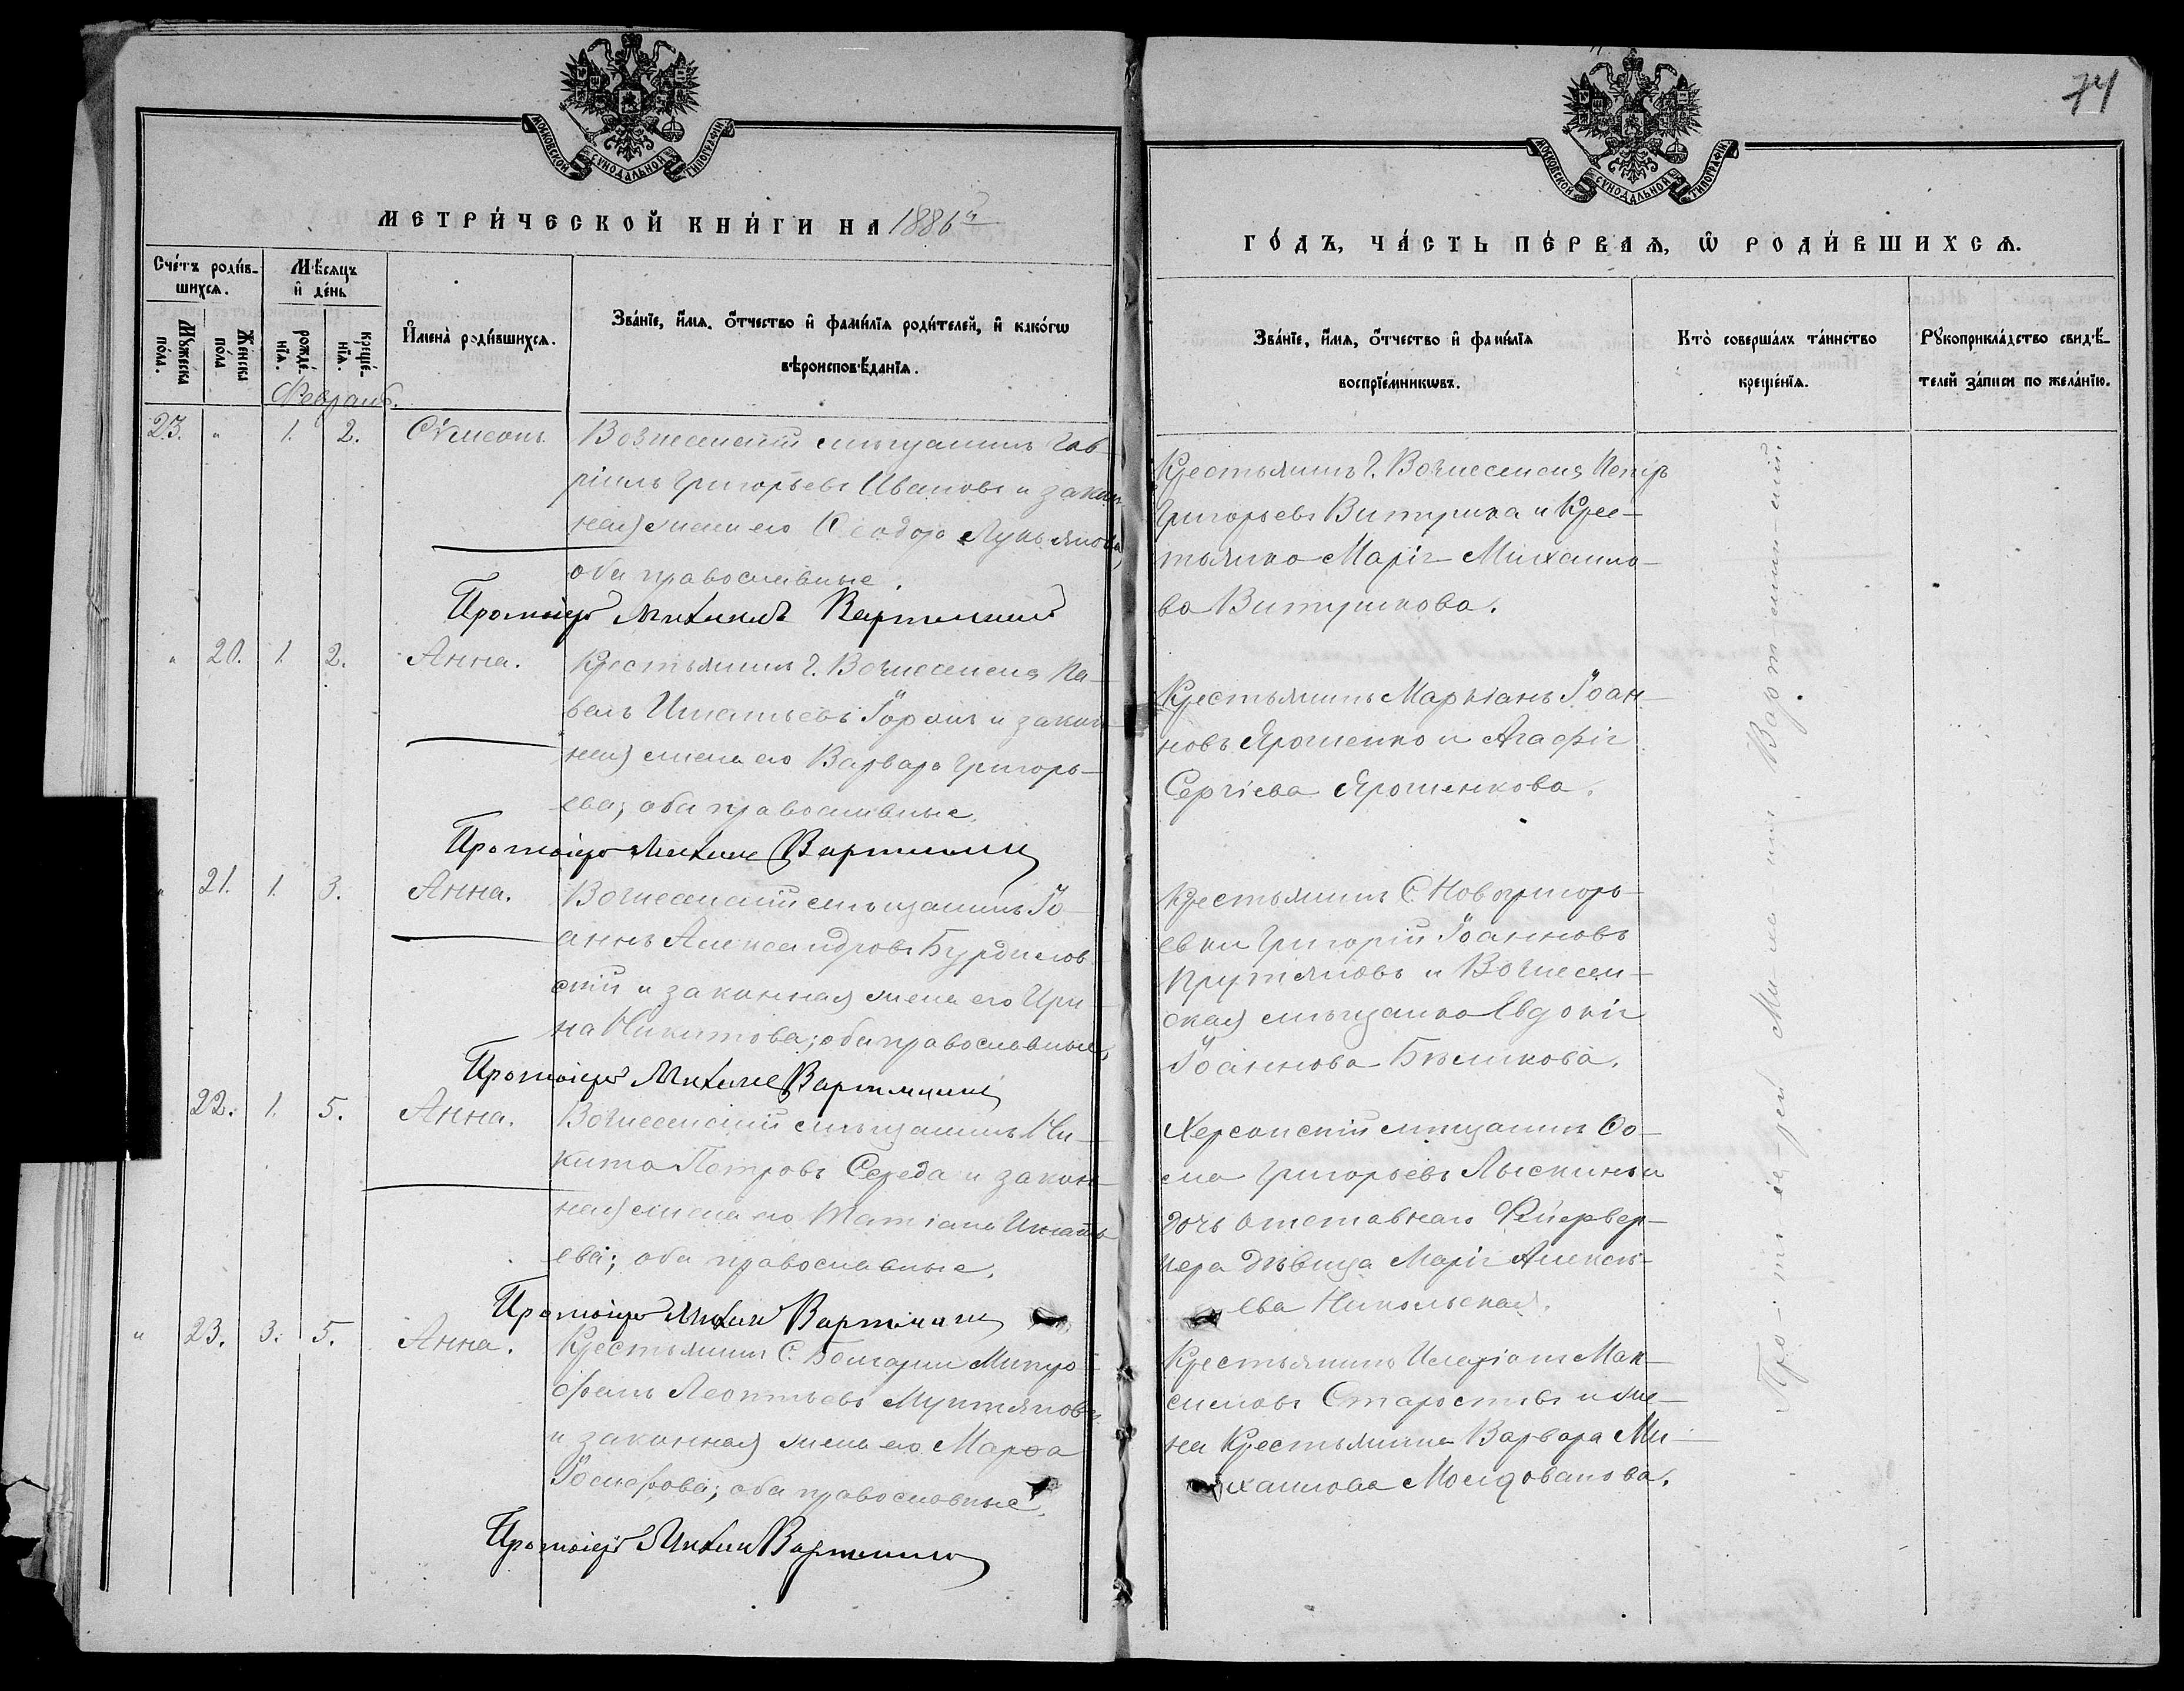 74
МОСКОВСКОЙ СУНОДАЛЬНОЙ ТИПОГРАФІИ
МОСКОВСКОЙ СУНОДАЛЬНОЙ ТИПОГРАФІИ
МЕТРИ́ЧЕСКОЙ КНИ́ГИ НА 1886 й
ГО́ДЪ, ЧА́СТЬ ПЕ́РВАѦ, Ѿ РОДИ́ВШИХСѦ.
Сче́тъ роди́в-
шихсѧ.
Мꙋ́жеска по́ла.
Же́нска по́ла
Мѣ́сѧцъ
и де́нь
рожде́-
нїѧ.
креще́-
нїѧ.
Имена̀ роди́вшихсѧ.
Зва́нїе, и́мѧ, ѻ́тчество и фами́лїѧ роди́телей, и како́гѡ
вѣроисповѣ́данїѧ.
Зва́нїе, и́мѧ, ѻ́тчество и фами́лїѧ
воспрїе́мникѡвъ.
Кто̀ соверша́лъ та́инство
креще́нїѧ.
Рꙋкоприкла́дство свидѣ́-
телей за́писи по жела́нїю.
Февраль.
23. " 1. 2. Сѵмеонъ.
Вознесенскій мѣщанинъ Гав-
ріилъ Григорьевъ Ивановъ и закон
ная жена его Ѳеодора Лукьянова,
оба православные.
Протоіерей Михаилъ Вартминскій
Крестьянинъ г. Вознесенска Петръ
Григорьевъ Витушка и Крес-
тьянка Марія Михаило-
ва Витушкова.
" 20. 1. 2. Анна.
Крестьянинъ г. Вознесенска Па-
велъ Игнатьевъ и закон-
ная жена его Варвара Григорь-
ева; оба православные.
Протоіерей Михаилъ
Крестьянинъ Маркіанъ Іоан-
новъ Ярошенко и Агафія
Сергіева Ярошенкова.
" 21. 1. 3. Анна.
Вознесенскій мѣщанинъ Іо-
аннъ Александровъ
скій и законная жена его Ири-
на Никитова; оба православные.
Протоіерей Михаилъ
Крестьянинъ С. Новогригорь-
евки Григорій Іоанновъ
Крутяковъ и Вознесен-
ская мѣщанка Евдокія
Іоаннова Бѣликова.
22. 1. 5. Анна.
Вознесенскій мѣщанинъ Ни-
кита Петровъ Середа и закон-
ная жена его Татіана Игнать-
ева; оба православные.
Протоіерей Михаилъ
Херсонскій мѣщанинъ Ѳо-
ма Григорьевъ Лыскинъ и
дочь отставнаго Фейервер-
кера дѣвица Марія Алексѣ-
ева Никольская.
" 23. 3. 5. Анна.
Крестьянинъ С. Болгарки Митро-
фанъ Леонтьевъ Мунтяновъ
и законная жена его Марѳа
Іосифова; оба православные.
Протоіерей Михаилъ
Крестьянинъ Иларіонъ Мак-
симовъ и же-
на Крестьянина Варвара Ми-
хаилова Молдованова.
Про-то-іе-рей Ми-ха-илъ